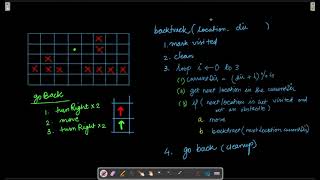 backtrack(location, dir )
1. mark visited
2. clean
3. loop i ← 0 to 3
(1) currentDir = (dir + i) % 4
(2) get next location in the currentDir
(3) if (next location is not visited and not an obstacle)
a. move
b. backtrack(next location, currentDir)
4. go back (cleanup)
go Back
1. turn Right x 2
2. move
3. turn Right x 2